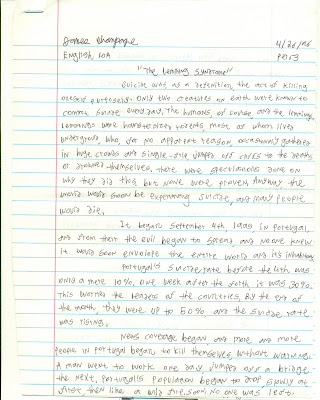 James Champagne
4/26/96
English, 10A
Per 3
"The Lemming Syndrome"
Suicide was, as a definition, the act of killing
oneself purposely. Only two creatures on earth were known to
commit suicide every day. The humans, of course, and the lemmings.
Lemmings were hamster-like rodents, most of whom lived
underground, who, for no apparent reason, occasionally gathered
in huge crowds and single-file jumped off cliffs to the deaths
or drowned themselves. There were speculations done on
why they did this, but none were proven. Anyway the
world would soon be experiencing suicide, and many people
would die.
It began September 4th, 1995, in Portugal,
and from there the evil began to spread, and no one knew
it would soon envelope the entire world and its inhabitants.
Portugal's suicide rate before the 4th was
only a mere 10%, one week after the fourth it was 30%.
This worried the leaders of the countries. By the end of
the month, they were up to 50%, and the suicide rate
was rising.
News coverage began and more and more
people in Portugal began to kill themselves, without warning.
A man went to work one day, jumped off a bridge
the next. Portugal's population began to drop slowly at
first, then like a wild fire. Soon, no one was left.